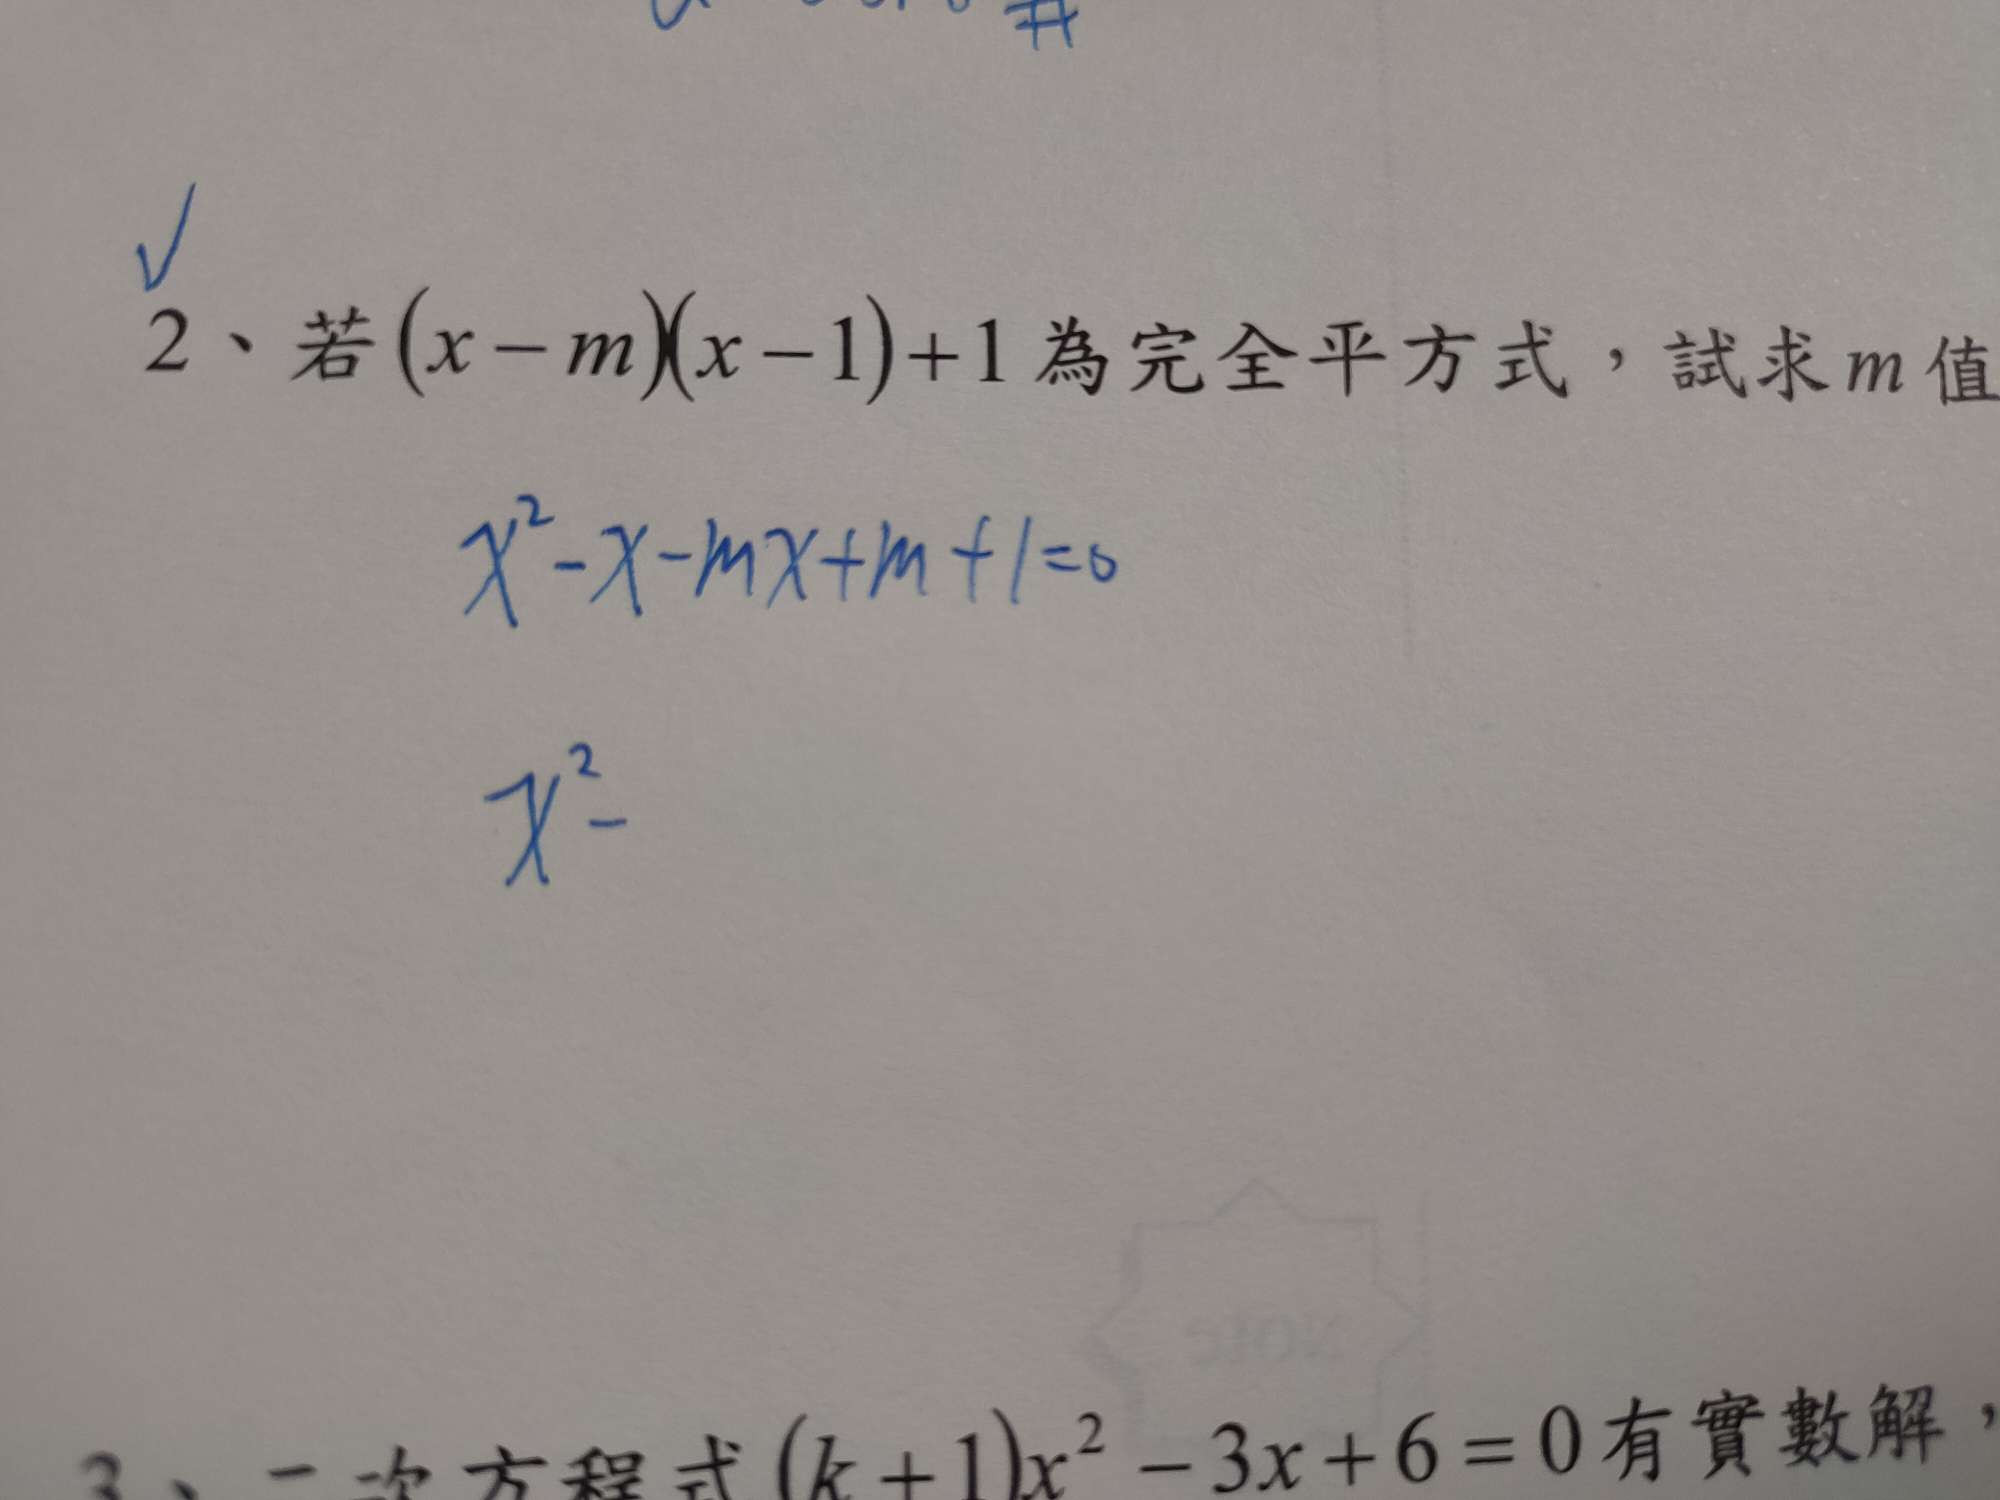 2、若(x-m)(x-1)+1為完全平方式，試求m值
x²-x-mx+m+1=0
x²-
3、二次方程式(k+1)x²-3x+6=0有實數解，